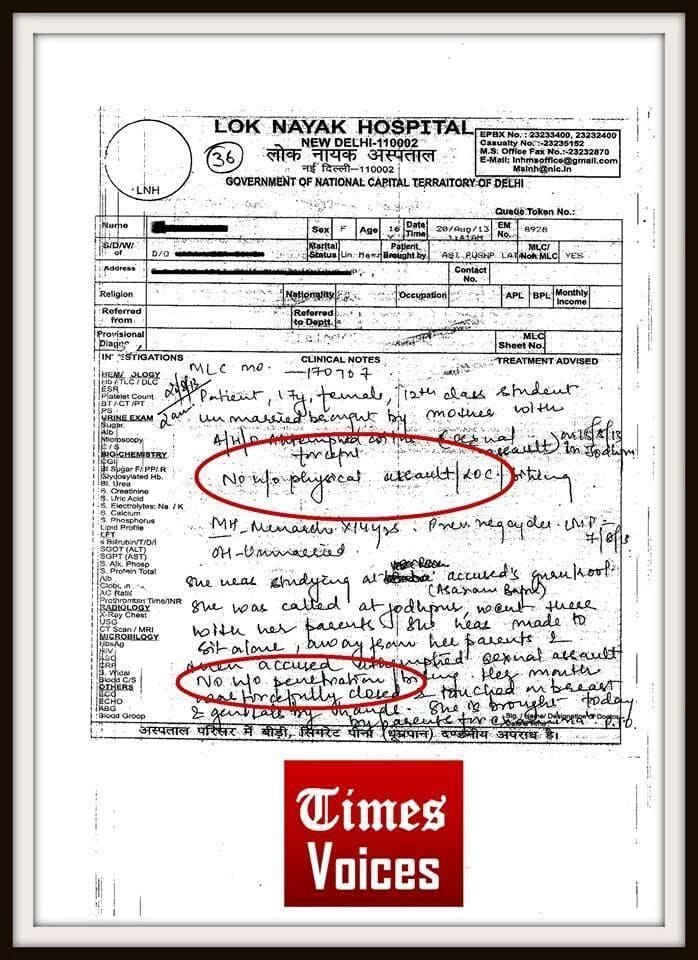 LOK NAYAK HOSPITAL
NEW DELHI-110002
लोक नायक अस्पताल
नई दिल्ली-110002
GOVERNMENT OF NATIONAL CAPITAL TERRAITORY OF DELHI
EPBX No. : 23233400, 23232400
Casualty No.:-23235152
M.S. Office Fax No.:-23232870
E-Mail: lnhmsoffice@gmail.com
Mslnh@nic.in
36
LNH
Queue Token No.:
Name Sex F Age 16 Date Time 20/Aug/13 EM No. 8928
S/D/W/ of D/O Marital Status Un. Marr Patient Brought by ASI PUSHP LAT MLC/ Non MLC YES
Address Contact No.
Religion Nationality Occupation APL BPL Monthly Income
Referred from Referred to Deptt.
Provisional MLC Sheet No.
CLINICAL NOTES TREATMENT ADVISED
MLC no. —170707
Patient, 17y, female, 12th class student
unmarried brought by mother with
forceful
No h/o physical assault/LOC/biting
OH-Unmarried.
She was studying at accused's gurukool
(Asaram Bapu)
She was called at Jodhpur, went there
with her parents. She was made to
sit alone, away from her parents &
then accused attempted sexual assault
No h/o penetration/biting. Her mouth
was forcefully closed & touched on breast
& genitals by hands. She is brought today
by parents for
P.T.O
HB / TLC / DLC
ESR
Platelet Count
BT / CT / PT
PS
URINE EXAM
Sugar
Alb
Microscopy
C / S
BIO-CHEMISTRY
Bl Sugar F/ PP/ R
Glycosylated Hb.
Bl. Urea
S. Creatinine
S. Uric Acid
S. Electrolytes: Na / K
S. Calcium
S. Phosphorus
Lipid Profile
LFT
s Billirubin/T/D/I
SGOT (ALT)
SGPT (AST)
S. Alk. Phosp
S. Protein Total
Alb
Prothrombin Time/INR
RADIOLOGY
X-Ray Chest
USG
CT Scan / MRI
MICROBIOLOGY
HbsAg
HIV
CRP
S. Widal
Blood C/S
OTHERS
ECG
ECHO
ABG
Blood Group
अस्पताल परिसर में बीड़ी, सिगरेट पीना (धूम्रपान) दण्डनीय अपराध है।
Times
Voices